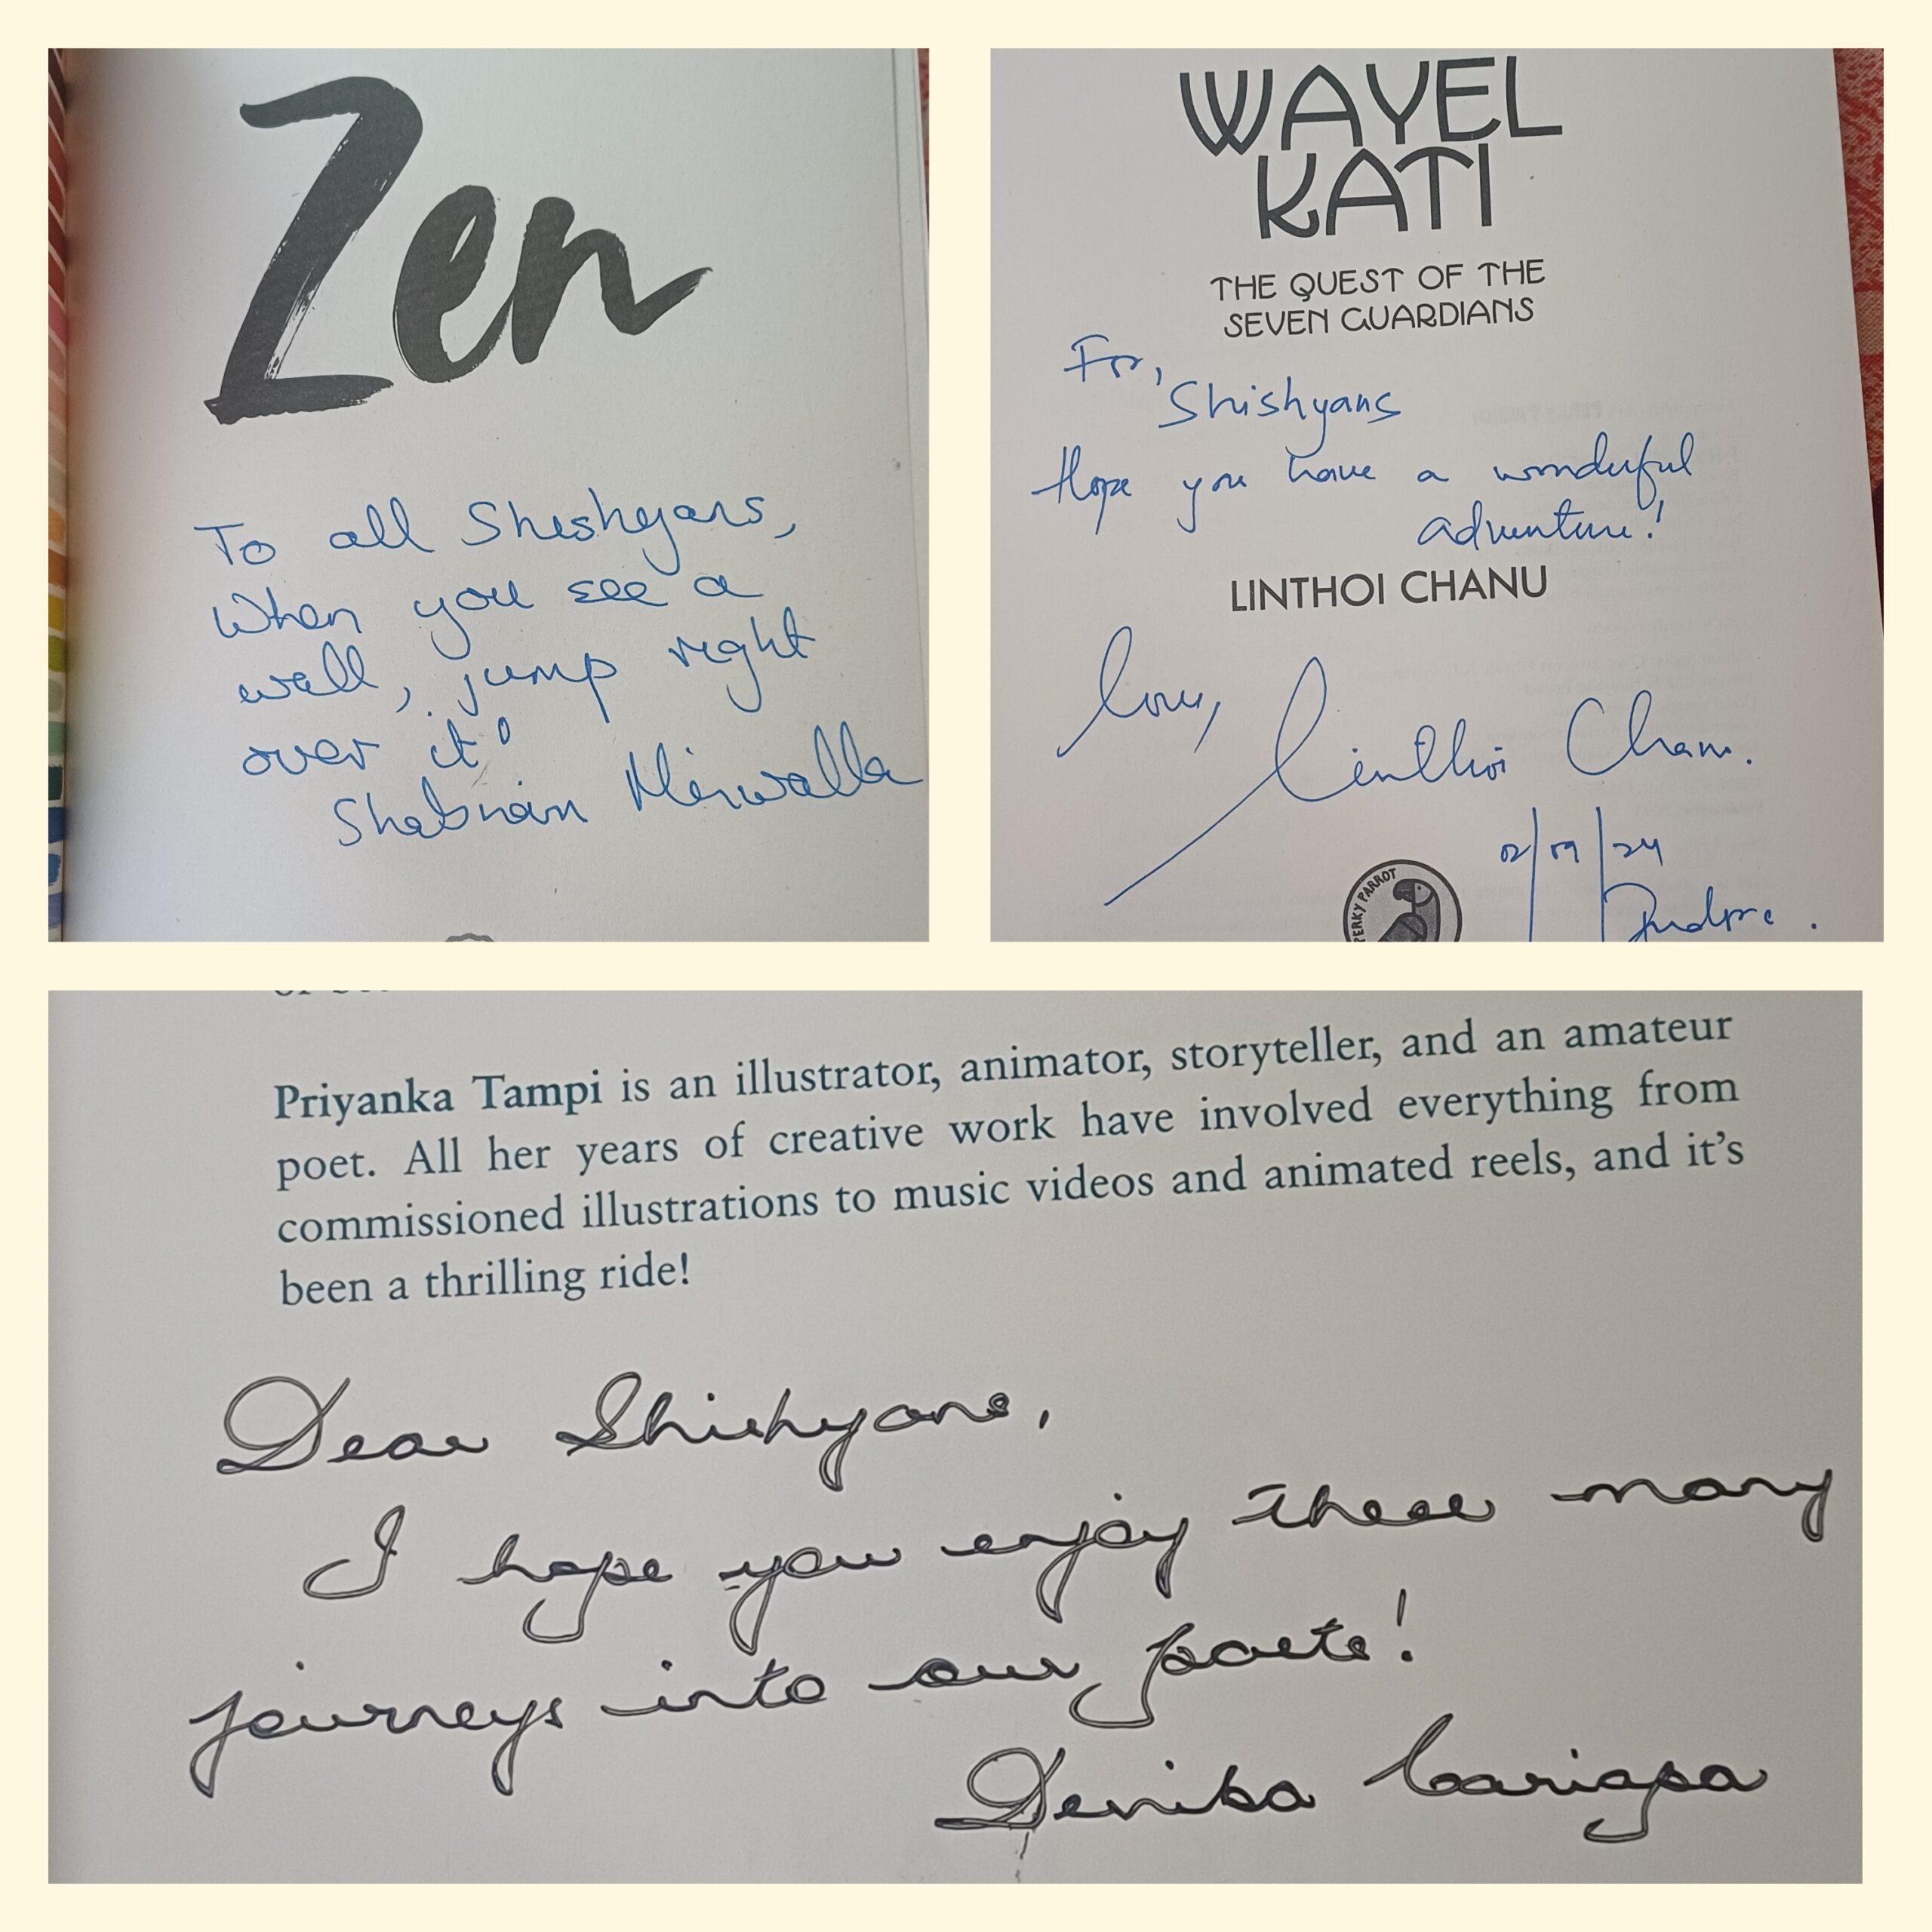 Zen
To all Shishyans,
When you see a
wall, jump right
over it!
Shabnam Minwalla
WAYEL
KATI
THE QUEST OF THE
SEVEN GUARDIANS
For,
Shishyans
Hope you have a wonderful
adventure!
LINTHOI CHANU
Love,
Linthoi Chanu.
02/09/24
PERKY PARROT
Priyanka Tampi is an illustrator, animator, storyteller, and an amateur
poet. All her years of creative work have involved everything from
commissioned illustrations to music videos and animated reels, and it's
been a thrilling ride!
Dear Shishyans,
I hope you enjoy these many
journeys into our pasts!
Devika Cariapa